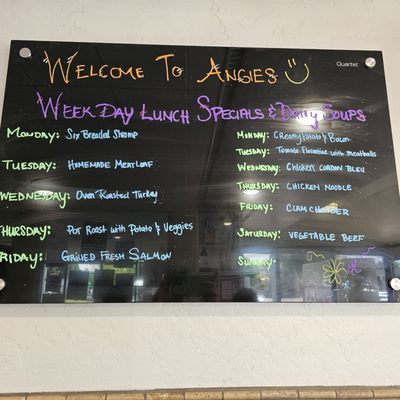 Welcome To Angies
Quartet
Week Day Lunch Specials & Daily Soups
Monday: Six Breaded Shrimp
Tuesday: Homemade Meatloaf
Wednesday: Oven Roasted Turkey
Thursday: Pot Roast with Potato & Veggies
Friday: Grilled Fresh Salmon
Monday: Creamy Potato & Bacon
Tuesday: Tomato Florentine with Meatballs
Wednesday: Chicken Cordon Bleu
Thursday: Chicken Noodle
Friday: Clam Chowder
Saturday: Vegetable Beef
Sunday: